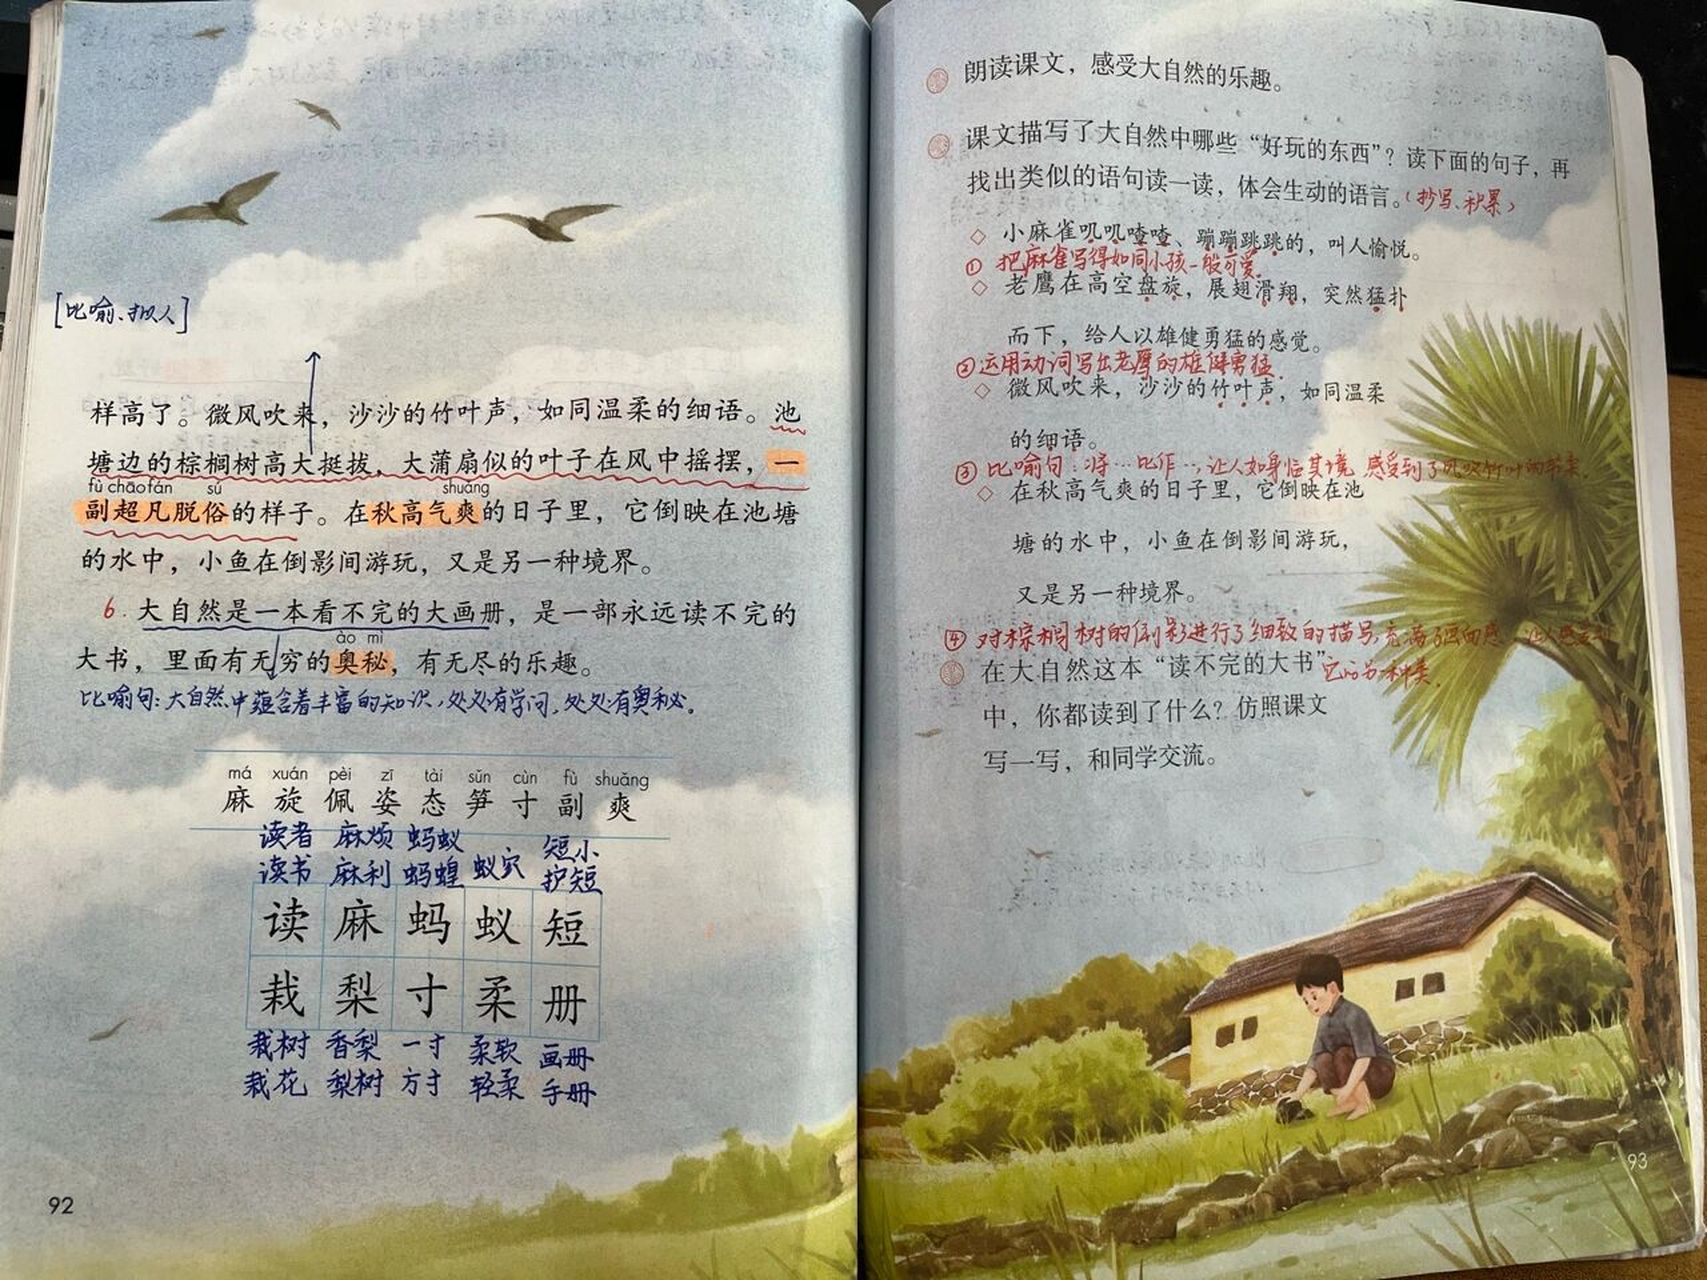 [比喻、拟人]
样高了。微风吹来，沙沙的竹叶声，如同温柔的细语。池
塘边的棕榈树高大挺拔，大蒲扇似的叶子在风中摇摆，一
fù chāo fán sú shuǎng
副超凡脱俗的样子。在秋高气爽的日子里，它倒映在池塘
的水中，小鱼在倒影间游玩，又是另一种境界。
6.大自然是一本看不完的大画册，是一部永远读不完的
ào mì
大书，里面有无穷的奥秘，有无尽的乐趣。
比喻句：大自然中蕴含着丰富的知识，处处有学问，处处有奥秘。
má xuán pèi zī tài sǔn cùn fù shuǎng
麻 旋 佩 姿 态 笋 寸 副 爽
读者 麻烦 蚂蚁 短小
读书 麻利 蚂蝗 蚁穴 护短
读 麻 蚂 蚁 短
栽 梨 寸 柔 册
栽树 香梨 一寸 柔软 画册
栽花 梨树 方寸 轻柔 手册
92
朗读课文，感受大自然的乐趣。
课文描写了大自然中哪些“好玩的东西”？读下面的句子，再
找出类似的语句读一读，体会生动的语言。(抄写、积累)
◇ 小麻雀叽叽喳喳、蹦蹦跳跳的，叫人愉悦。
① 把麻雀写得如同小孩一般可爱。
◇ 老鹰在高空盘旋，展翅滑翔，突然猛扑
而下，给人以雄健勇猛的感觉。
② 运用动词写出老鹰的雄健勇猛。
◇ 微风吹来，沙沙的竹叶声，如同温柔
的细语。
③ 比喻句：将…比作…，让人如身临其境，感受到了风吹竹叶的
◇ 在秋高气爽的日子里，它倒映在池
塘的水中，小鱼在倒影间游玩，
又是另一种境界。
④ 对棕榈树的倒影进行了细致的描写，充满了画面感
在大自然这本“读不完的大书”它的另一种美。
中，你都读到了什么？仿照课文
写一写，和同学交流。
93